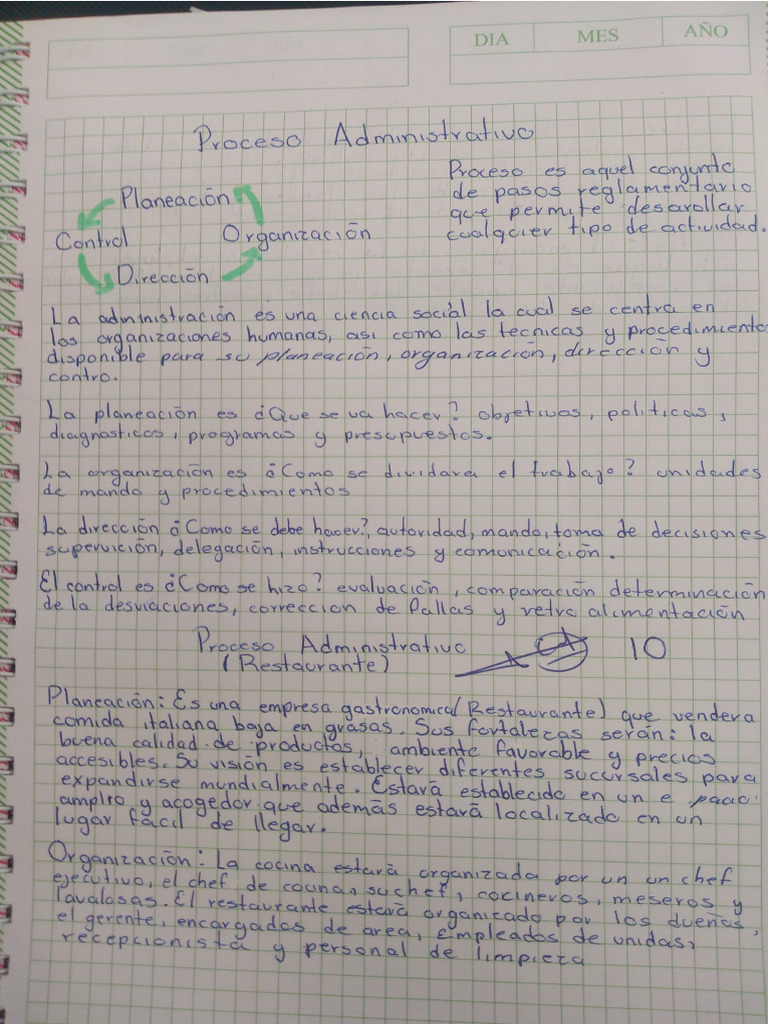 DIA MES AÑO
Proceso Administrativo
Planeación
Control Organización
Dirección
Proceso es aquel conjunto
de pasos reglamentario
que permite desarollar
cualquier tipo de actividad.
La administración es una ciencia social la cual se centra en
los organizaciones humanas, asi como las tecnicas y procedimiento
disponible para su planeación, organización, dirección y
contro.
La planeación es ¿Que se va hacer? objetivos, politicas,
diagnosticos, programas y presupuestos.
La organización es ¿Como se dividara el trabajo? unidades
de mando y procedimientos
La dirección ¿Como se debe hacer?, autoridad, mando, toma de decisiones
supervición, delegación, instrucciones y comunicación.
El control es ¿Como se hizo? evaluación, comparación determinación
de la desviaciones, correccion de fallas y retro alimentación
Proceso Administrativo 10
(Restaurante)
Planeación: Es una empresa gastronomica (Restaurante) que vendera
comida italiana baja en grasas. Sus fortalezas serán: la
buena calidad de productos, ambiente favorable y precios
accesibles. Su visión es establecer diferentes sucursales para
expandirse mundialmente. Estará establecido en un
amplio y acogedor que además estará localizado en un
lugar fácil de llegar.
Organización: La cocina estará organizada por un un chef
ejecutivo, el chef de cocina, suchef, cocineros, meseros y
lavalosas. El restaurante estará organizado por los dueños,
el gerente, encargados de area, empleados de unidas,
recepcionista y personal de limpieza